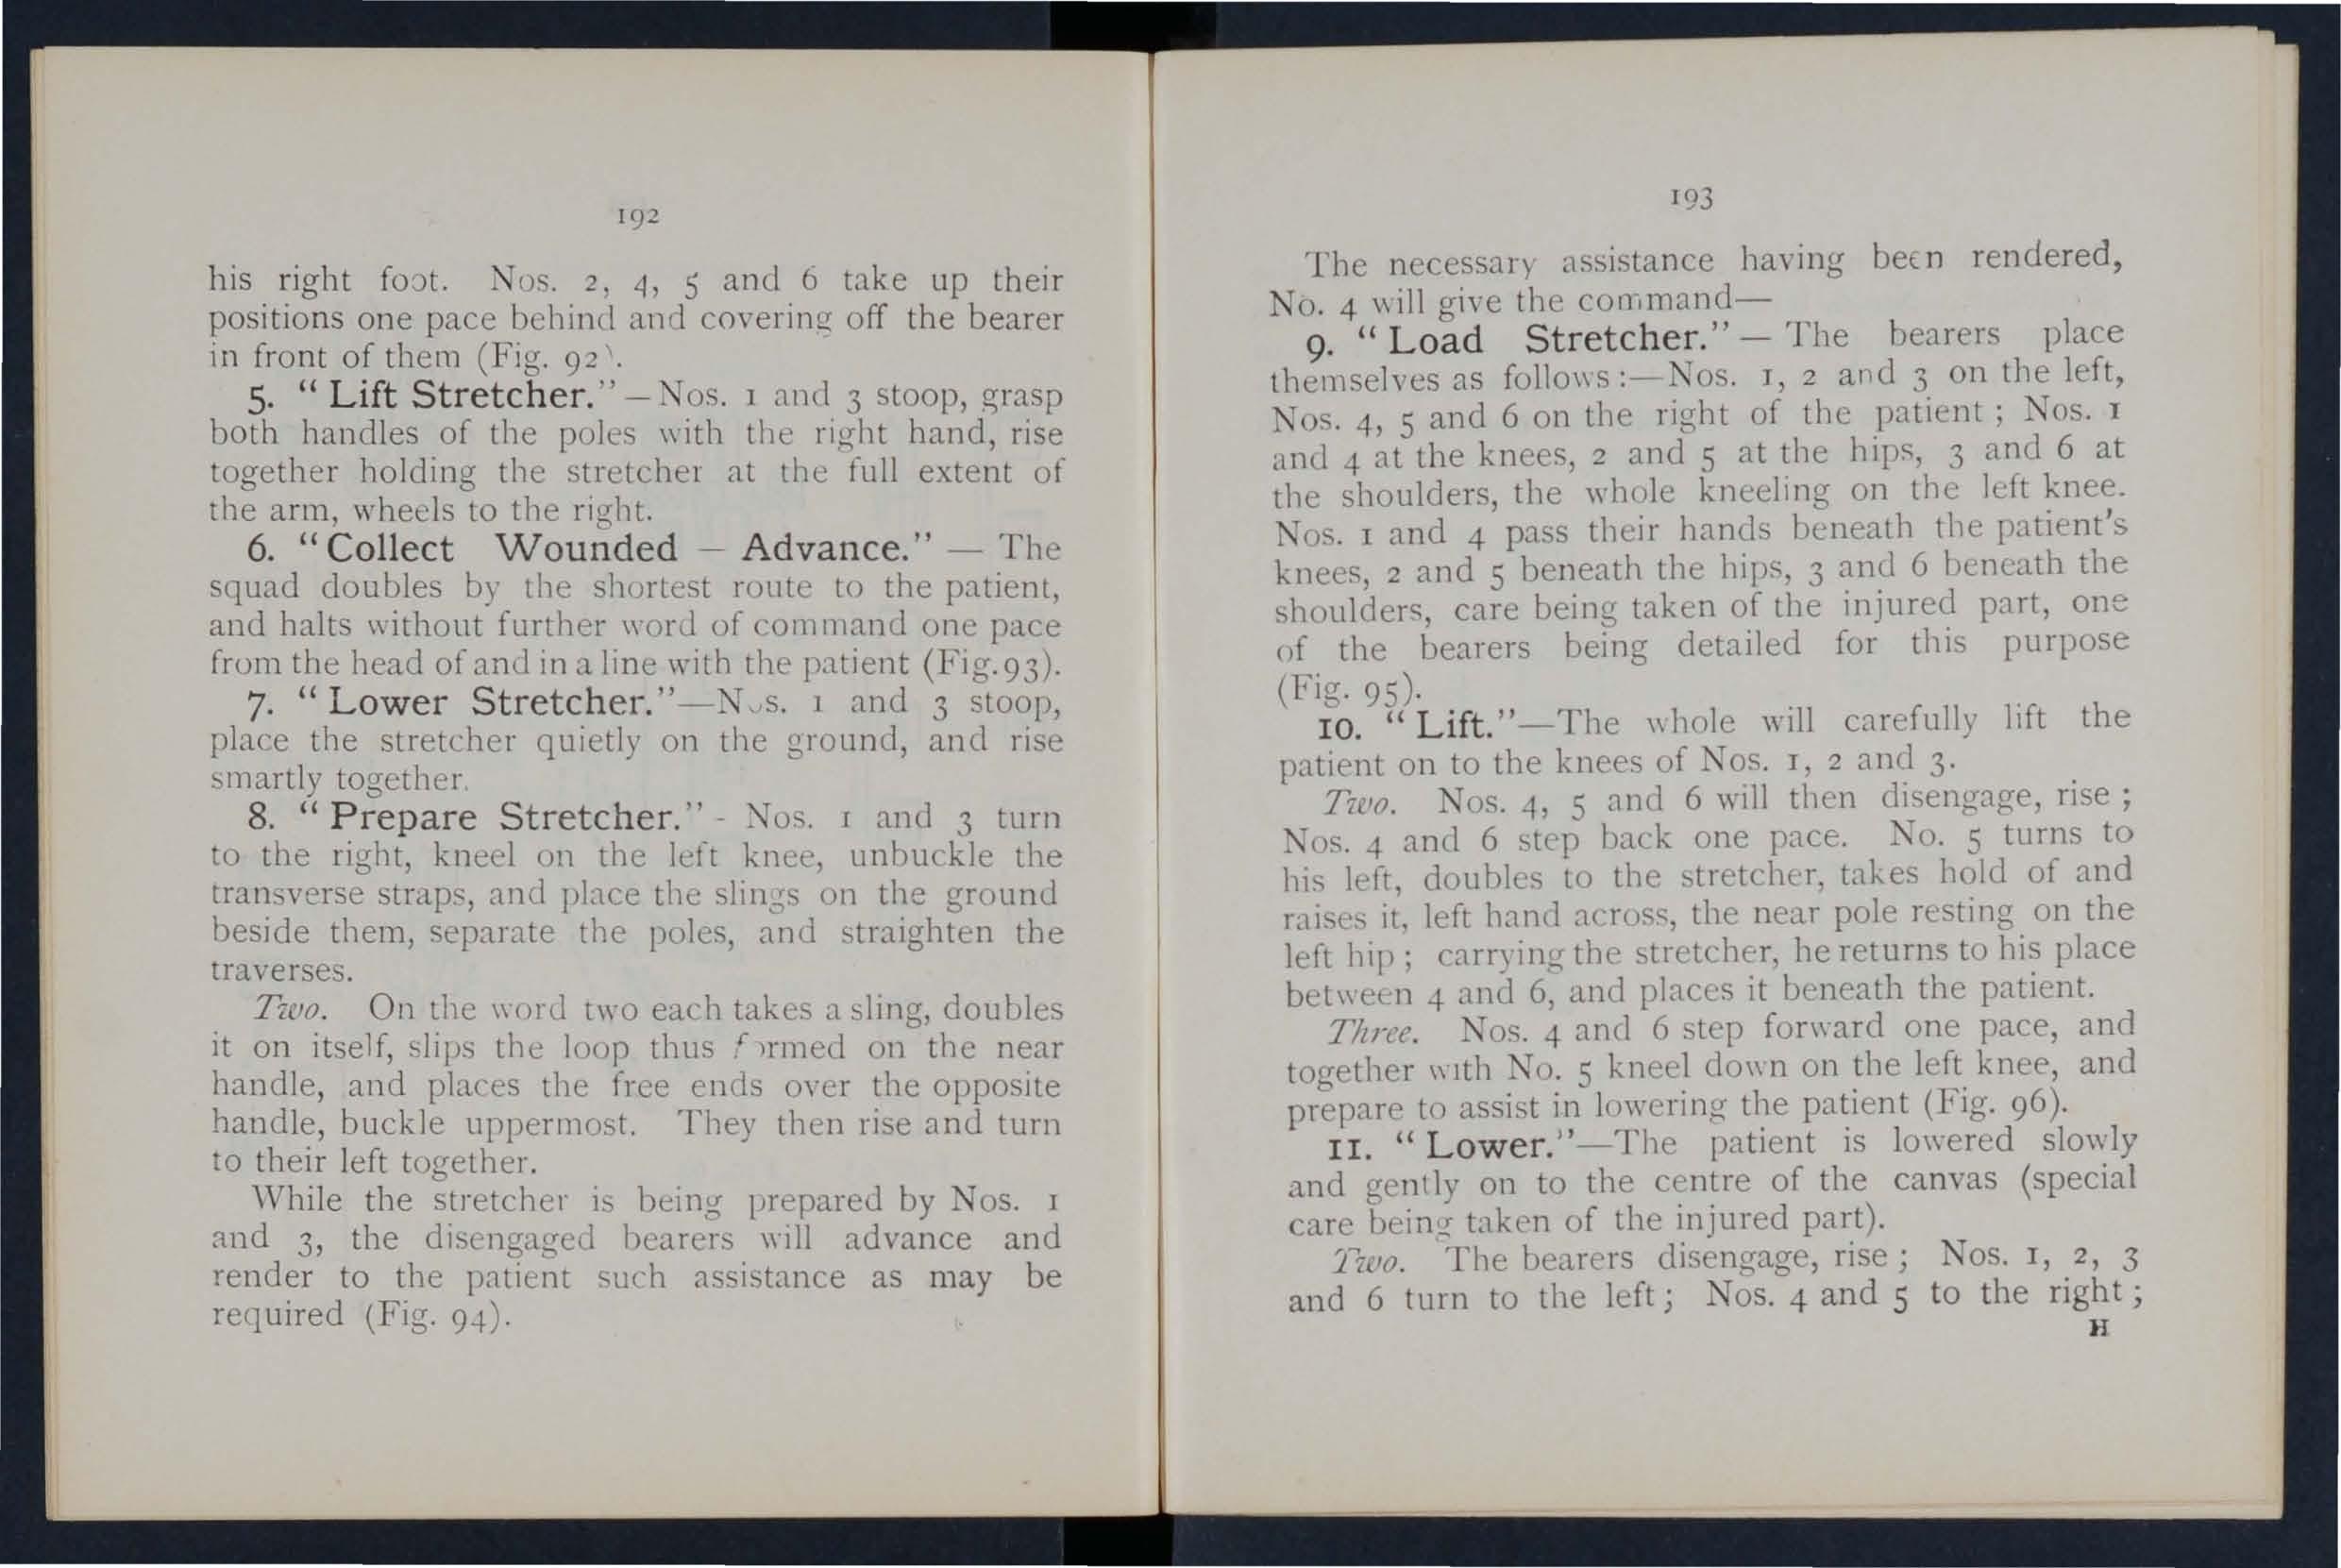 192
his right foot. Nos. 2, 4, 5 and 6 take up their
positions one pace behind and covering off the bearer
in front of them (Fig. 92).
5. “Lift Stretcher.”—Nos. 1 and 3 stoop, grasp
both handles of the poles with the right hand, rise
together holding the stretcher at the full extent of
the arm, wheels to the right.
6. “Collect Wounded — Advance.” — The
squad doubles by the shortest route to the patient,
and halts without further word of command one pace
from the head of and in a line with the patient (Fig. 93).
7. “Lower Stretcher.”—Nos. 1 and 3 stoop,
place the stretcher quietly on the ground, and rise
smartly together.
8. “Prepare Stretcher.” - Nos. 1 and 3 turn
to the right, kneel on the left knee, unbuckle the
transverse straps, and place the slings on the ground
beside them, separate the poles, and straighten the
traverses.
Two. On the word two each takes a sling, doubles
it on itself, slips the loop thus formed on the near
handle, and places the free ends over the opposite
handle, buckle uppermost. They then rise and turn
to their left together.
While the stretcher is being prepared by Nos. 1
and 3, the disengaged bearers will advance and
render to the patient such assistance as may be
required (Fig. 94).
193
The necessary assistance having been rendered,
No. 4 will give the command—
9. “Load Stretcher.” — The bearers place
themselves as follows:—Nos. 1, 2 and 3 on the left,
Nos. 4, 5 and 6 on the right of the patient; Nos. 1
and 4 at the knees, 2 and 5 at the hips, 3 and 6 at
the shoulders, the whole kneeling on the left knee.
Nos. 1 and 4 pass their hands beneath the patient's
knees, 2 and 5 beneath the hips, 3 and 6 beneath the
shoulders, care being taken of the injured part, one
of the bearers being detailed for this purpose
(Fig. 95).
10. “Lift.”—The whole will carefully lift the
patient on to the knees of Nos. 1, 2 and 3.
Two. Nos. 4, 5 and 6 will then disengage, rise;
Nos. 4 and 6 step back one pace. No. 5 turns to
his left, doubles to the stretcher, takes hold of and
raises it, left hand across, the near pole resting on the
left hip; carrying the stretcher, he returns to his place
between 4 and 6, and places it beneath the patient.
Three. Nos. 4 and 6 step forward one pace, and
together with No. 5 kneel down on the left knee, and
prepare to assist in lowering the patient (Fig. 96).
11. “Lower.”—The patient is lowered slowly
and gently on to the centre of the canvas (special
care being taken of the injured part).
Two. The bearers disengage, rise; Nos. 1, 2, 3
and 6 turn to the left; Nos. 4 and 5 to the right;
H